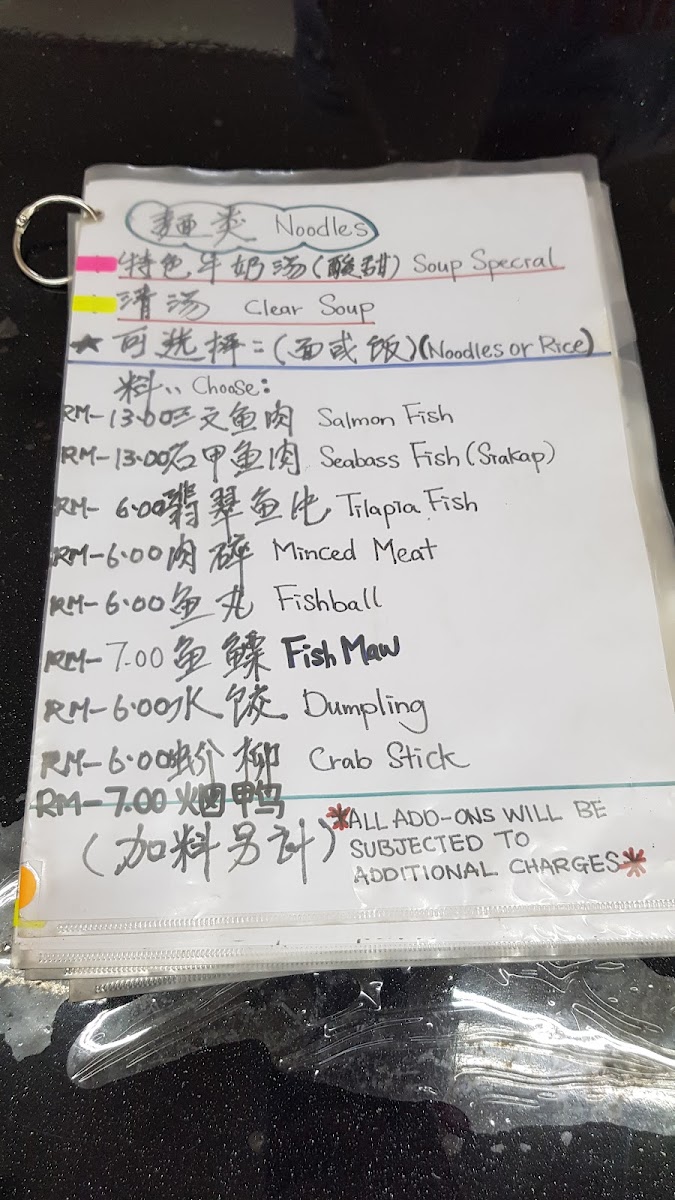 麵类 Noodles
特色牛奶汤(酸甜) Soup Special
清汤 Clear Soup
★ 可选择:(面或饭)(Noodles or Rice)
料:Choose:
RM-13.00三文鱼肉 Salmon Fish
RM-13.00石甲鱼肉 Seabass Fish (Siakap)
RM-6.00翡翠鱼 Tilapia Fish
RM-6.00肉碎 Minced Meat
RM-6.00鱼丸 Fishball
RM-7.00鱼鳔 Fish Maw
RM-6.00水饺 Dumpling
RM-6.00蚧柳 Crab Stick
RM-7.00烟鸭
(加料另计) *ALL ADD-ONS WILL BE
SUBJECTED TO
ADDITIONAL CHARGES*